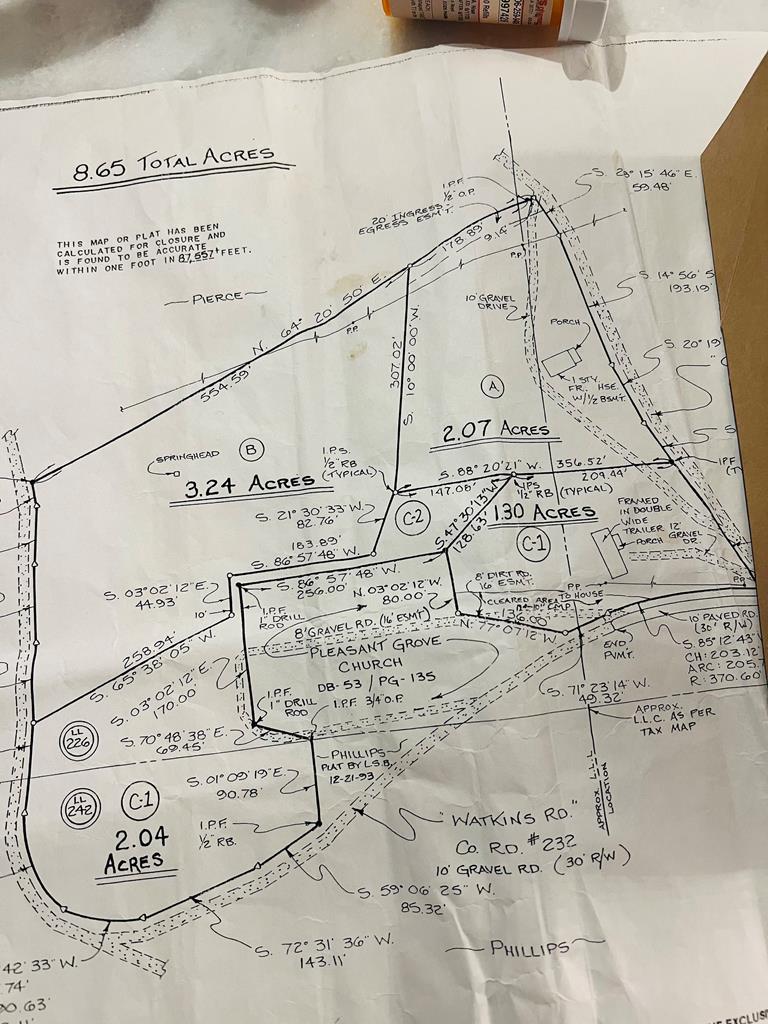 8.65 TOTAL ACRES
THIS MAP OR PLAT HAS BEEN
CALCULATED FOR CLOSURE AND
IS FOUND TO BE ACCURATE
WITHIN ONE FOOT IN 87,557+ FEET.
PIERCE
I.P.F.
1/2" O.P.
20' INGRESS
EGRESS ESMT.
178.89'
9.14'
P.P.
S. 23° 15' 46" E.
59.48'
S. 14° 56' 5
193.19'
S. 20° 19'
N. 64° 20' 50" E.
554.59'
P.P.
307.02'
S. 10° 00' 00" W.
10' GRAVEL
DRIVE
PORCH
1 STY.
FR. HSE.
W/1/2 BSMT.
A
2.07 ACRES
B
SPRINGHEAD
3.24 ACRES
I.P.S.
1/2" RB
(TYPICAL)
S. 88° 20' 21" W. 356.52'
147.08'
209.44'
I.P.S.
1/2" RB (TYPICAL)
S. 47° 30' 13" W.
128.63'
1.30 ACRES
C-2
C-1
FRAMED
IN DOUBLE
WIDE
TRAILER 12'
PORCH GRAVEL
DR.
S. 21° 30' 33" W.
82.76'
183.89'
S. 86° 57' 48" W.
S. 86° 57' 48" W.
256.00'
S. 03° 02' 12" E.
44.93'
10'
I.P.F.
1" DRILL
ROD
N. 03° 02' 12" W.
80.00'
8' GRAVEL RD. (16' ESMT)
8' DIRT RD.
16 ESMT.
CLEARED AREA
P.P.
TO HOUSE
N. 77° 07' 12" W.
PLEASANT GROVE
CHURCH
DB-53 / PG-135
258.94'
S. 65° 38' 05" W.
S. 03° 02' 12" E.
170.00'
I.P.F.
1" DRILL
ROD
I.P.F. 3/4" O.P.
S. 70° 48' 38" E.
69.45'
END
PVMT.
10' PAVED RD.
(30' R/W)
S. 85° 12' 43"
CH: 203.12'
ARC: 205.7
R: 370.60'
S. 71° 23' 14" W.
49.32'
APPROX.
L.L.C. AS PER
TAX MAP
APPROX. L.L.L.
LOCATION
LL
226
LL
242
C-1
2.04
ACRES
PHILLIPS
PLAT BY L.S.B.
12-21-93
S. 01° 09' 19" E.
90.78'
I.P.F.
1/2" RB.
"WATKINS RD."
CO. RD. #232
10' GRAVEL RD. (30' R/W)
S. 59° 06' 25" W.
85.32'
S. 72° 31' 36" W.
143.11'
PHILLIPS
42' 33" W.
.74'
90.63'